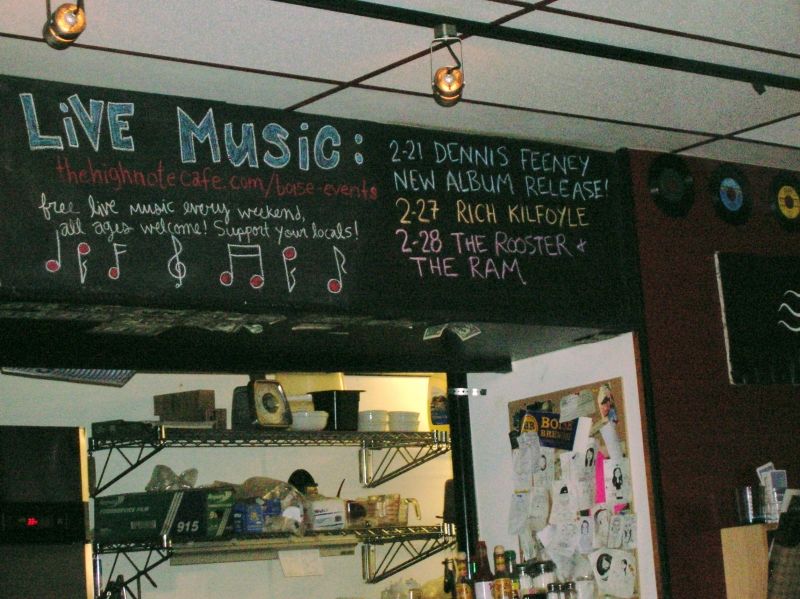 LiVE MUSiC:
thehighnotecafe.com/boise-events
free live music every weekend,
all ages welcome! Support your locals!
2-21 DENNIS FEENEY
NEW ALBUM RELEASE!
2-27 RICH KILFOYLE
2-28 THE ROOSTER &
THE RAM
BOISE
915